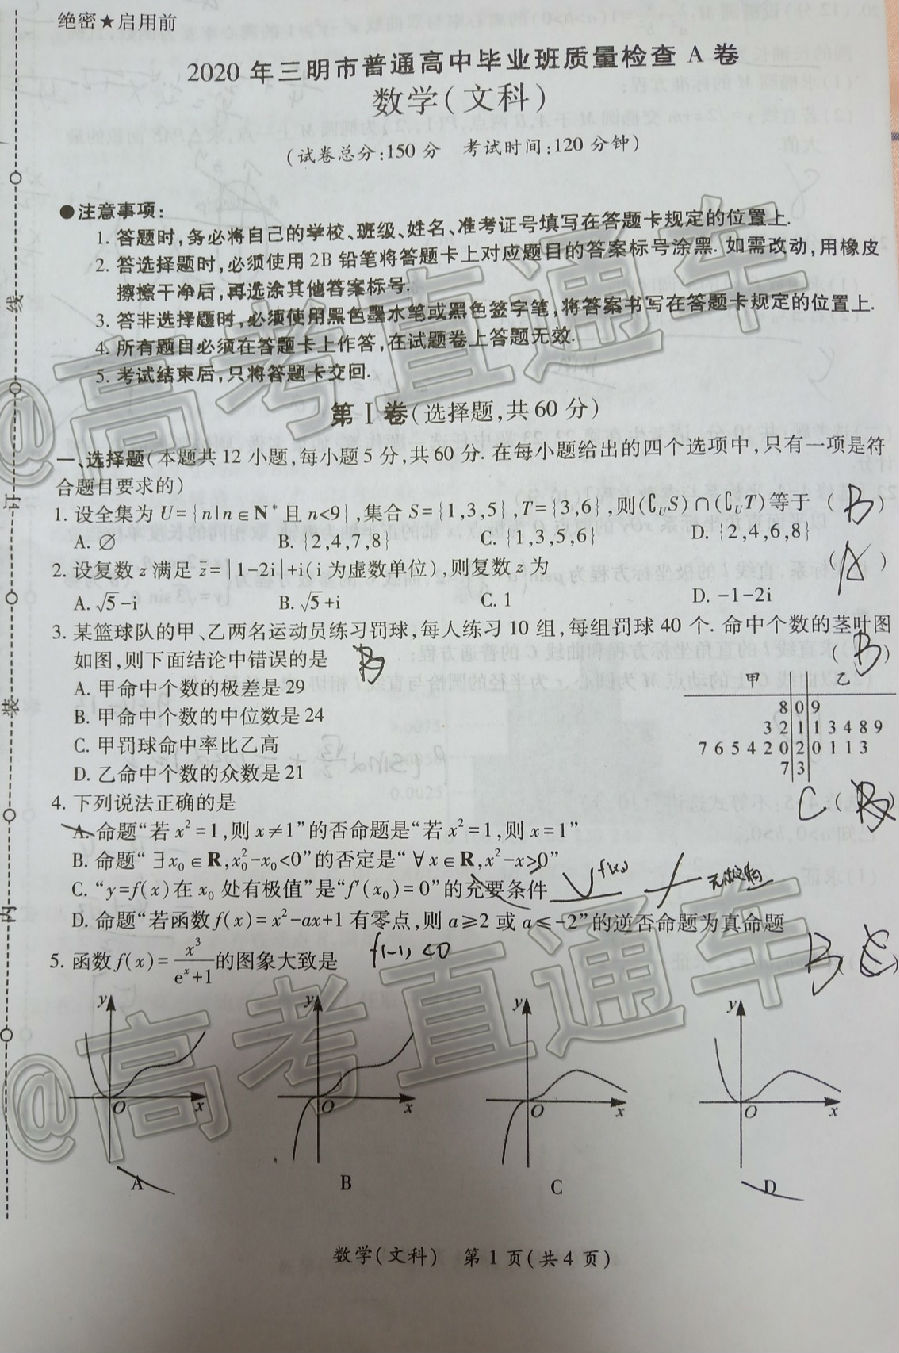 绝密★启用前
2020 年三明市普通高中毕业班质量检查 A 卷
数学(文科)
(试卷总分:150 分 考试时间:120 分钟)
●注意事项:
1. 答题时,务必将自己的学校、班级、姓名、准考证号填写在答题卡规定的位置上.
2. 答选择题时,必须使用 2B 铅笔将答题卡上对应题目的答案标号涂黑. 如需改动,用橡皮
擦擦干净后,再选涂其他答案标号.
3. 答非选择题时,必须使用黑色墨水笔或黑色签字笔,将答案书写在答题卡规定的位置上.
4. 所有题目必须在答题卡上作答,在试题卷上答题无效.
5. 考试结束后,只将答题卡交回.
第 Ⅰ 卷(选择题,共 60 分)
一、选择题(本题共 12 小题,每小题 5 分,共 60 分. 在每小题给出的四个选项中,只有一项是符
合题目要求的)
1. 设全集为 U={n|n∈N⁺且 n<9},集合 S={1,3,5},T={3,6},则(∁ᵤS)∩(∁ᵤT)等于 ( B )
A. ∅ B. {2,4,7,8} C. {1,3,5,6} D. {2,4,6,8}
2. 设复数 z 满足 z̄=|1-2i|+i(i 为虚数单位),则复数 z 为 ( A )
A. √5-i B. √5+i C. 1 D. -1-2i
3. 某篮球队的甲、乙两名运动员练习罚球,每人练习 10 组,每组罚球 40 个. 命中个数的茎叶图
如图,则下面结论中错误的是 B ( B )
A. 甲命中个数的极差是 29
B. 甲命中个数的中位数是 24
C. 甲罚球命中率比乙高
D. 乙命中个数的众数是 21
甲 乙
8 0 9
3 2 1 1 3 4 8 9
7 6 5 4 2 0 2 0 1 1 3
7 3
4. 下列说法正确的是 C ( B )
A. 命题“若 x²=1,则 x≠1”的否命题是“若 x²=1,则 x=1”
B. 命题“∃x₀∈R,x₀²-x₀<0”的否定是“∀x∈R,x²-x≥0”
C. “y=f(x)在 x₀ 处有极值”是“f′(x₀)=0”的充要条件 f(x)
D. 命题“若函数 f(x)=x²-ax+1 有零点,则 a≥2 或 a≤-2”的逆否命题为真命题
5. 函数 f(x)=x³/(eˣ+1)的图象大致是 f(-1)<0 B C
y y y y
O x O x O x O x
A B C D
数学(文科) 第 1 页(共 4 页)
线
订
装
内
@高考直通车
@高考直通车